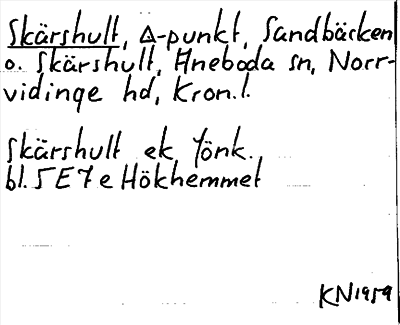 Skärshult, Δ-punkt, Sandbäcken
o. Skärshult, Aneboda sn, Norr-
vidinge hd, Kron.l.
Skärshult ek. Jönk.
bl. 5E7e Hökhemmet
KN1959